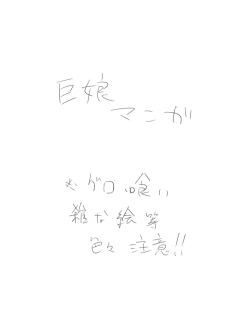 巨娘
マンガ
※グロ喰い
雑な絵等
色々注意!!